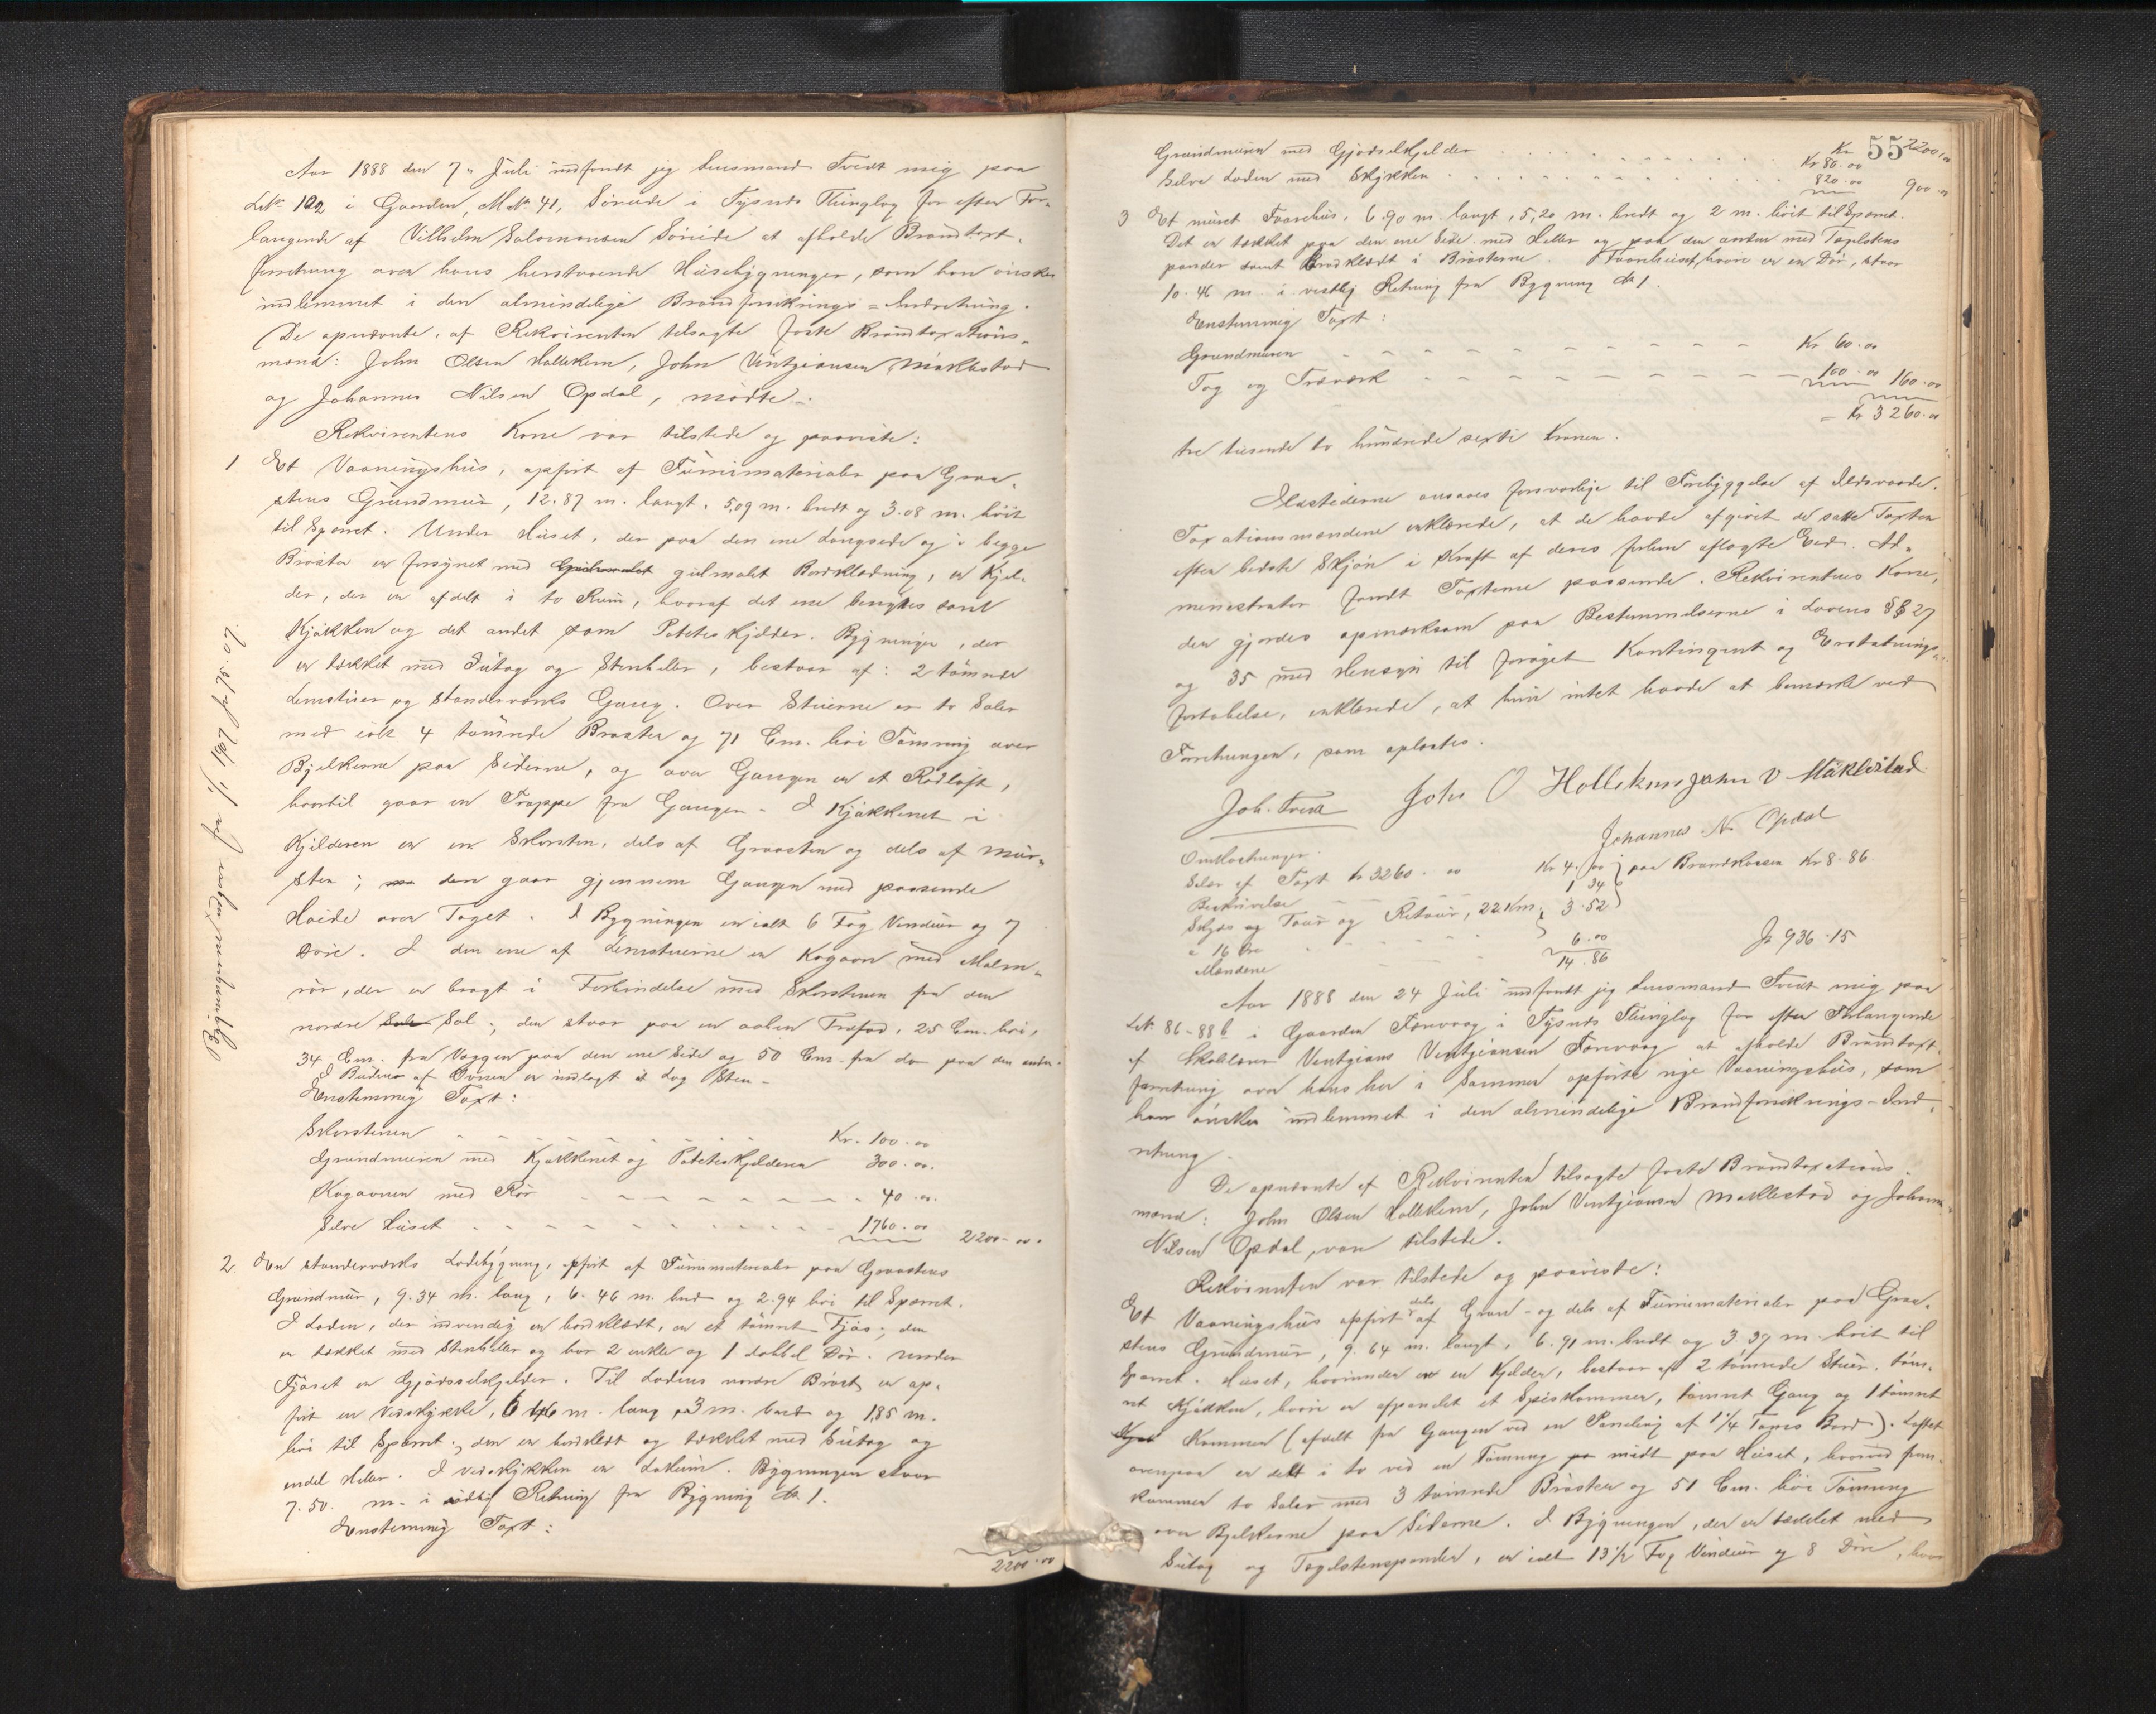 Aar 1888 den 7. Juli indfandt jeg Lensmand Tvedt mig paa
Litr. 122 i Gaarden, Matr. 41, Söreide i Tysnes Thinglag for efter For-
langende af Vilhelm Salomonsen Söreide at afholde Brandtaxt-
forretning over hans herstaaende Husebygninger, som han önsker
indlemmet i den almindelige Brandforsikrings-Indretning.
De opnævnte, af Rekvirenten tilsagte faste Brandtaxations-
mænd: John Olsen Hallekem, John Vintgiansen Mäklestad
og Johannes Nilsen Opdal, mödte.
Rekvirentens Kone var tilstede og paaviste:
1 Et Vaaningshus, opfört af Furrimaterialer paa Graa-
stens Grundmur, 12.87 m. langt, 5,09 m. bredt og 3.08 m. höit
til Sparret. Under Huset, der paa den ene Langside og i begge
Bröster er forsynet med gulmalet Bordklædning, er Kjel-
der, der er afdelt i to Rum, hvoraf det ene benyttes som
Kjökken og det andet som Poteteskjelder. Bygningen, der
er tækket med Sutag og Stenheller, bestaar af: 2 tömrede
Lemstuer og Standerværks Gang. Over Stuerne er to Saler
med ialt 4 tömrede Bröster og 71 Cm. höi Tömring over
Bjelkerne paa Siderne, og over Gangen er et Rodloft,
hvortil gaar en Trappe fra Gangen. I Kjökkenet i
Kjelderen er en Skorsten, dels af Graasten og dels af Mur-
sten; den gaar gjennem Gangen med passende
Höide over Taget. I Bygningen er ialt 6 Fag Vinduer og 7
Döre. I den ene af Lemstuerne er Kogovn med Malm-
rör, der er bragt i Forbindelse med Skorstenen fra den
nordre Sal; den staar paa en aaben Træfod, 25 Cm. höi,
34 Cm. fra Væggen paa den ene Side og 50 Cm. fra do paa den anden.
I Bunden af Ovnen er indlagt et Lag Sten.
Enstemmig Taxt:
Skorstenen Kr. 100.00
Grundmuren med Kjökkenet og Poteteskjelderen 300.00.
Kogovnen med Rör 40.00.
Selve Huset 1760.00 2200.00.
2 En standerværks Ladebygning, opfört af Furrimaterialer paa Graastens
Grundmur, 9.34 m. lang, 6.46 m. bred og 2.94 höi til Sparret.
I Laden, der indvendig er bordklædt, er et tömret Fjös; den
er tækket med Stenheller og har 2 enkle og 1 dobbel Dör. Under
Fjöset er Gjödselskjelder. Til Ladens nordre Bröst er op-
fört en Vedskykke, 6.46 m. lang, 3 m. bred og 1,85 m.
höi til Sparret; den er bordklædt og tækket med Sutag og
endel Heller. I Vedskykken er Lokum. Bygningen staar
7.50. m. i Retning fra Bygning No 1.
Enstemmig Taxt:
2200.00
55
Kr 2200.00
Grundmuren med Gjödselkjelder Kr 80.00
Selve Laden med Skykken 820.00 900.00
3 Et muret Vaanehus, 6.90 m. langt, 5,20 m. bredt og 2 m. höit til Sparret.
Det er tækket paa den ene Side med Heller og paa den anden med Taglstens
pander samt Bordklædt i Brösterne. hvori er en Dör, staar
10.46 m. i vestlig Retning fra Bygning No 1.
Enstemmig Taxt:
Grundmuren Kr. 60.00
Tag og Træværk 100.00 160.00
= Kr 3260.00
tre tusende to hundrede sexti Kroner.
Ildstederne ansaaes forsvarlige til Forebyggelse af Ildsvaade.
Taxationsmændene erklærede, at de havde afgivet de satte Taxter
efter bedste Skjön i Kraft af deres forhen aflagte Eed. Ad-
ministrator fandt Taxterne passende. Rekvirentens Kone,
der gjordes opmærksom paa Bestemmelserne i Lovens §§ 27
og 35 med Hensyn til foröget Kontingent og Erstatnings-
fortabelse, erklærede, at hun intet havde at bemærke ved
Forretningen, som oplæstes.
Joh. Tvedt John O Hallekem John V Mäklestad
Johannes N. Opdal
Omkostninger:
Salær af Taxt Kr 3260.00 Kr 4.00 paa Brandkassen Kr 8.86.
Beskrivelse 1 34
Skyds og Tour og Retour, 22 Km. 3.52
a 16 Öre
Mændene 6.00
14.86
Jr 936-15
Aar 1888 den 24 Juli indfandt jeg Lensmand Tvedt mig paa
Litr. 86-88 b i Gaarden Færevaag i Tysnes Thinglag for efter Forlangende
af Skolelærer Ventgians Ventgiansen Færevaag at afholde Brandtaxt-
forretning over hans her i Sommer opförte nye Vaaningshus, som
han önsker indlemmet i den almindelige Brandforsikrings-Ind-
retning.
De opnævnte af Rekvirenten tilsagte faste Brandtaxations-
mænd: John Olsen Hallekem, John Ventgiansen Mæklestad og Johannes
Nilsen Opdal, var tilstede.
Rekvirenten var tilstede og paaviste:
Et Vaaningshus opfört dels af Gran- og dels af Furrimaterialer paa Graa-
stens Grundmur, 9.64 m. langt, 6.91 m. bredt og 3 37 m. höit til
Sparret. Huset, hvorunder er en Kjelder, bestaar af 2 tömrede Stuer, töm-
ret Kjökken, hvori er afpanelet et Spiskammer, tömret Gang og 1 tömret
Kammer (afdelt fra Gangen ved en Paneling af 1 1/4 Tomes Bord). Loftet
ovenpaa er delt i to ved en Tömring midt paa Huset, hvorved frem-
kommer to Saler med 3 tömrede Bröster og 51 Cm. höi Tömring
over Bjelkerne paa Siderne. I Bygningen, der er tækket med
Sutag og Taglstenspander, er ialt 13 1/2 Fag Vinduer og 8 Döre,